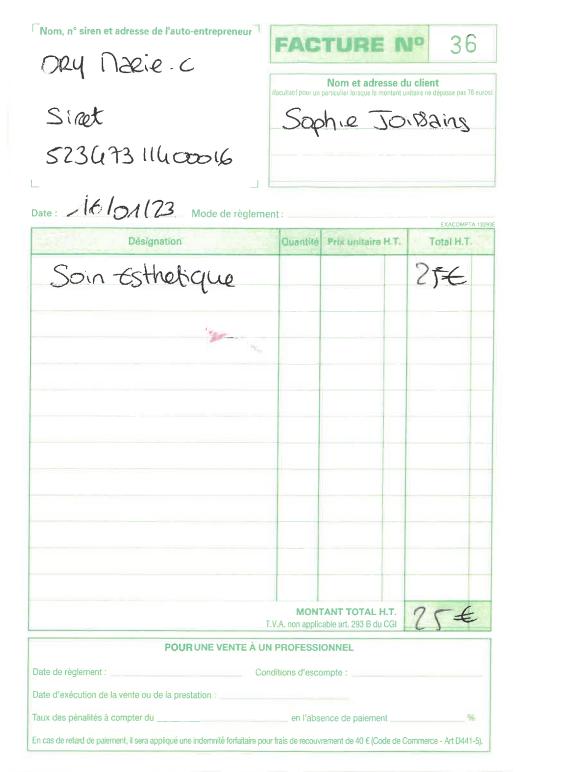 Nom, n° siren et adresse de l'auto-entrepreneur
FACTURE N° 36
DRY Marie.C
Nom et adresse du client
(facultatif pour un particulier lorsque le montant unitaire ne dépasse pas 76 euros)
Siret
Sophie Joissains
523473 11400016
Date : 16/01/23 Mode de règlement :
EXACOMPTA 13293E
Désignation Quantité Prix unitaire H.T. Total H.T.
Soin Esthetique 25€
MONTANT TOTAL H.T. 25€
T.V.A. non applicable art. 293 B du CGI
POUR UNE VENTE À UN PROFESSIONNEL
Date de règlement : Conditions d'escompte :
Date d'exécution de la vente ou de la prestation :
Taux des pénalités à compter du en l'absence de paiement %
En cas de retard de paiement, il sera appliqué une indemnité forfaitaire pour frais de recouvrement de 40 € (Code de Commerce - Art D441-5).